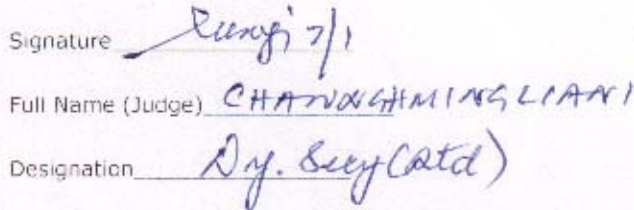 Signature 7/1
Full Name (Judge) CHAWNGHMINGLIANI
Designation Dy. Secy (Rtd)